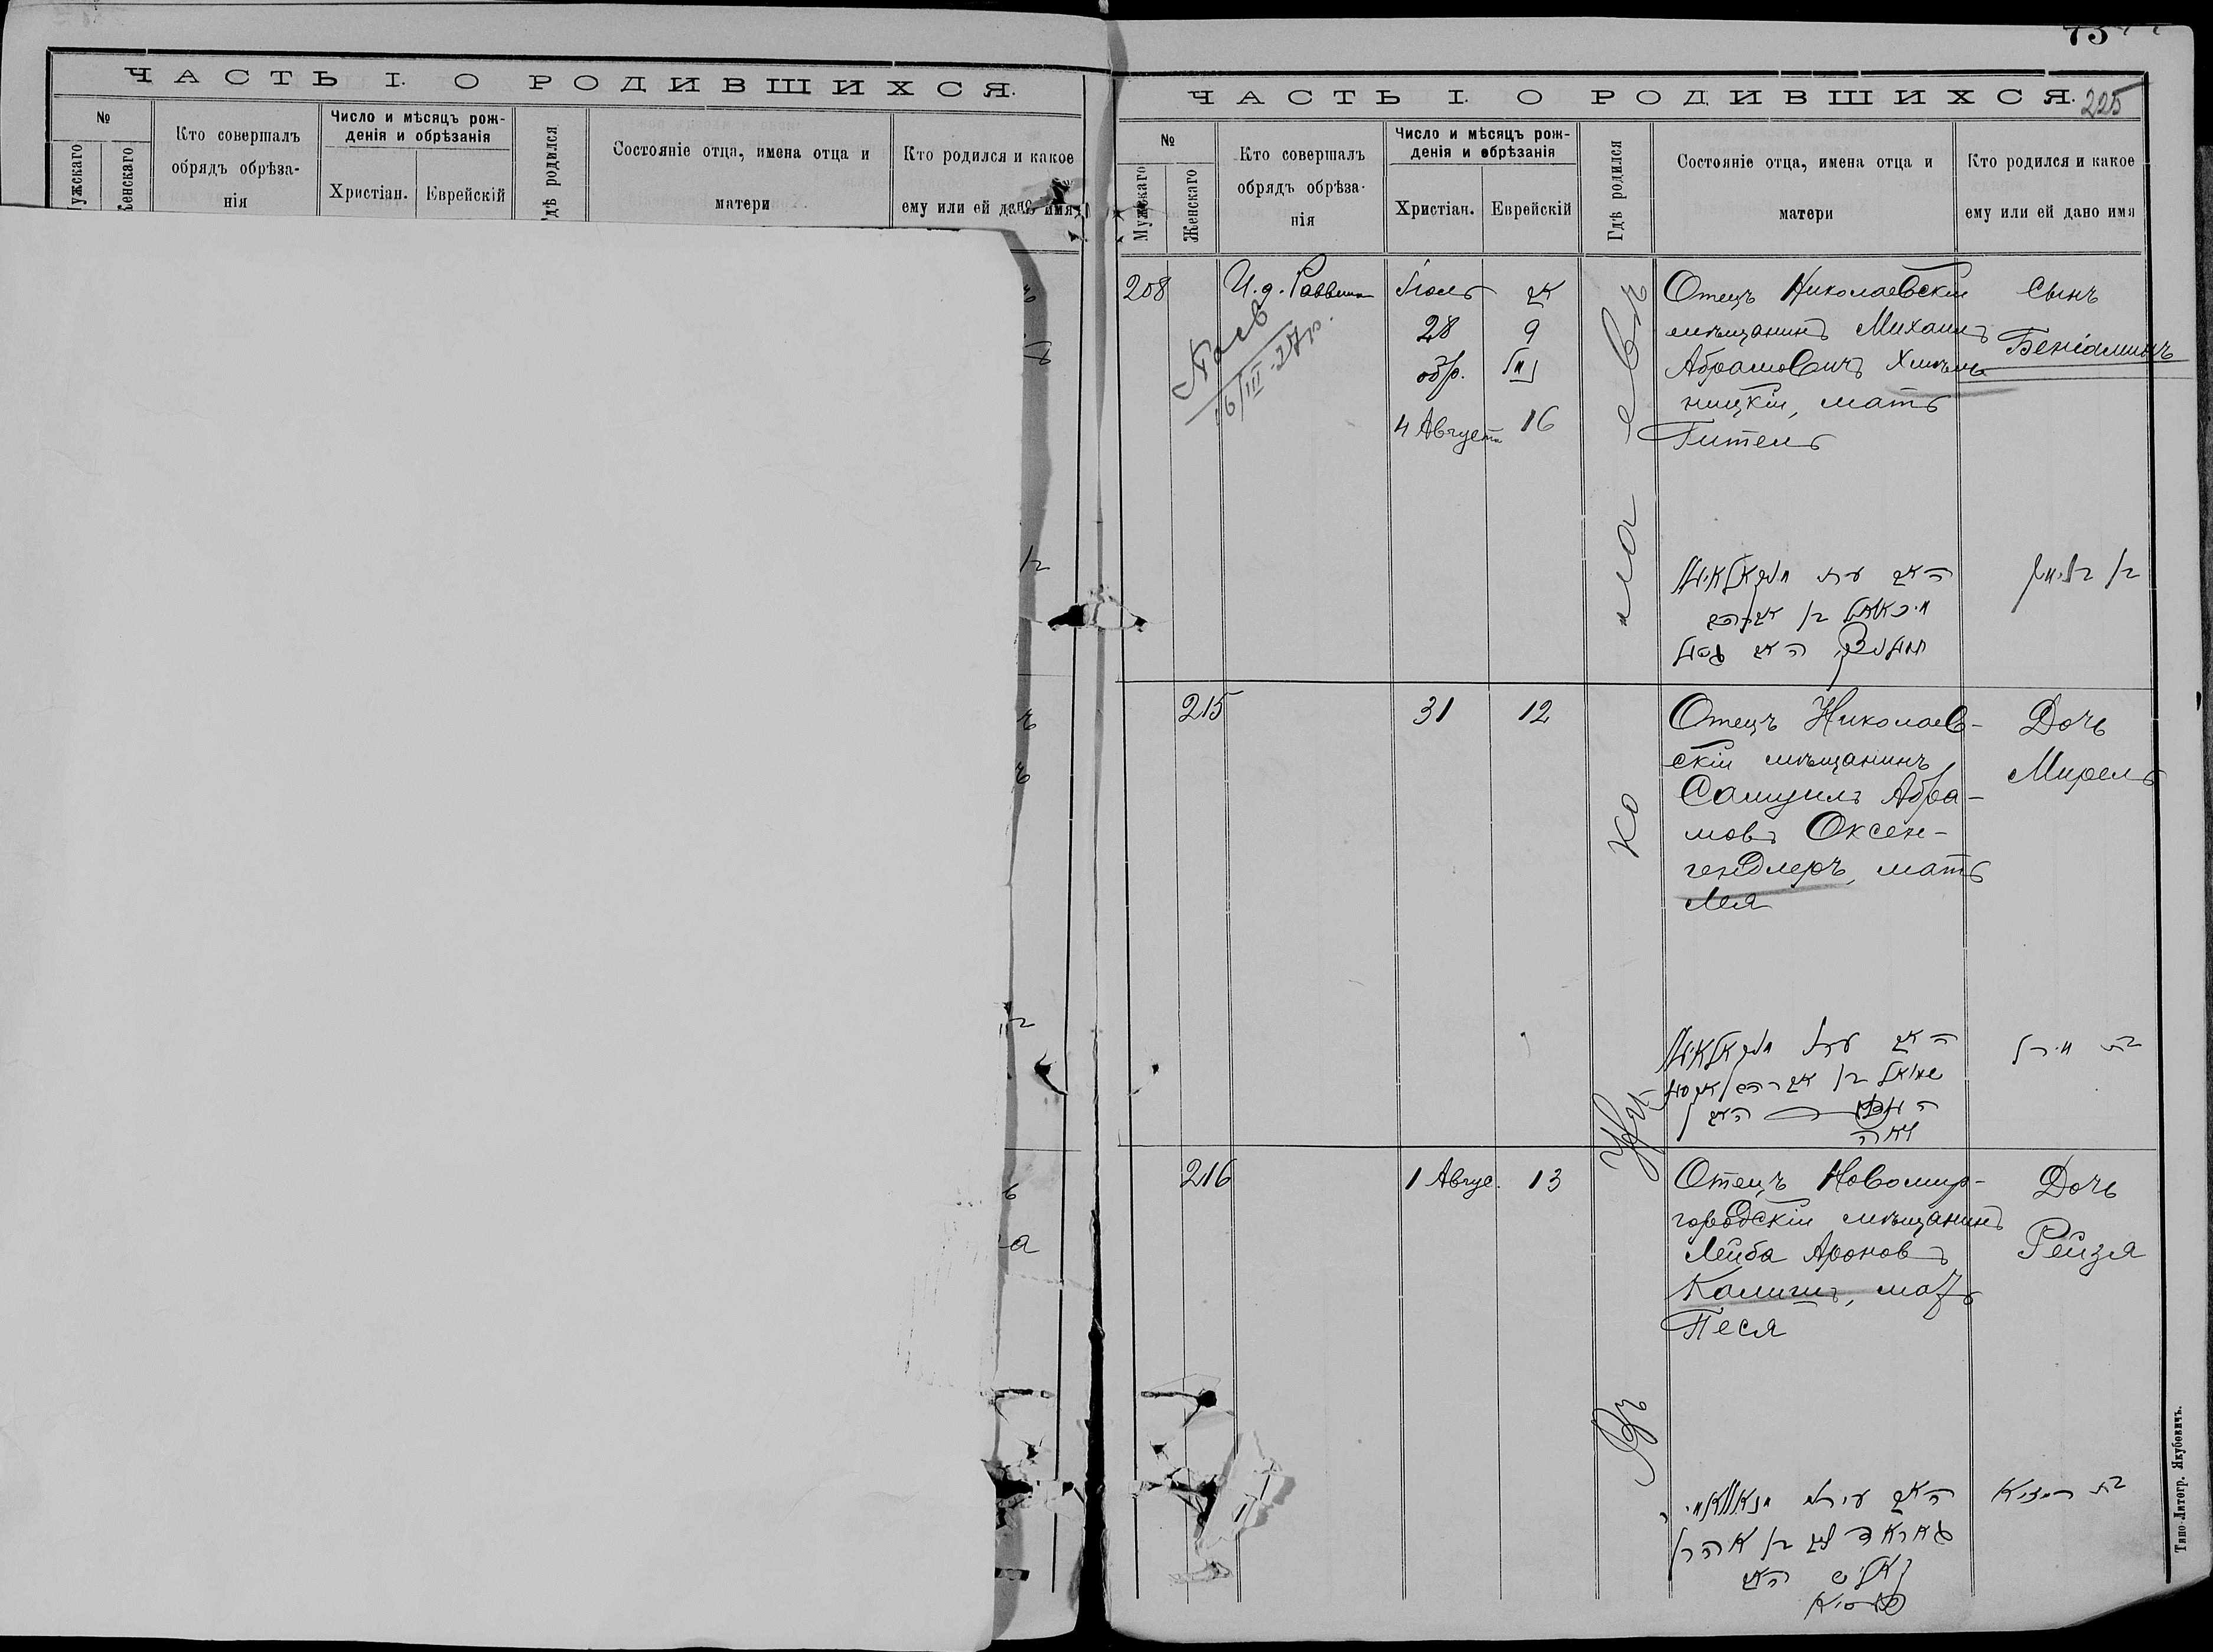 ЧАСТЬ I. О РОДИВШИХСЯ.
№
Мужскаго
Женскаго
Кто совершалъ
обрядъ обрѣза-
нія
Число и мѣсяцъ рож-
денія и обрѣзанія
Христіан.
Еврейскій
Гдѣ родился
Состояніе отца, имена отца и
матери
Кто родился и какое
ему или ей дано имя
73
ЧАСТЬ I. О РОДИВШИХСЯ.
225
№
Мужскаго
Женскаго
Кто совершалъ
обрядъ обрѣза-
нія
Число и мѣсяцъ рож-
денія и обрѣзанія
Христіан.
Еврейскій
Гдѣ родился
Состояніе отца, имена отца и
матери
Кто родился и какое
ему или ей дано имя
208
И. д. Раввина
16/III-27 р.
Іюль
28
обр.
4 Августа
אב
9
16
Отецъ Николаевскій
мѣщанинъ Михаилъ
Абрамовичъ Хмѣль-
ницкій, мать
Гитель
Сынъ
Беніаминъ
האב
מיכאל בן אברהם
האם גיטל
בן בנימין
215
31
12
Отецъ Николаев-
скій мѣщанинъ
Самуилъ Абра-
мовъ Оксен-
гендлеръ, мать
Лея
Дочь
Мирель
האב
שמואל בן אברהם
האם
לאה
בת מירל
216
1 Авгус.
13
Отецъ Новомир-
городскій мѣщанинъ
Лейба Ароновъ
Калишъ, мать
Песя
Дочь
Рейзя
האב
לייב בן אהרן
קאליש האם
פעסיא
בת רייזיא
Типо-Литогр. Якубовичъ.